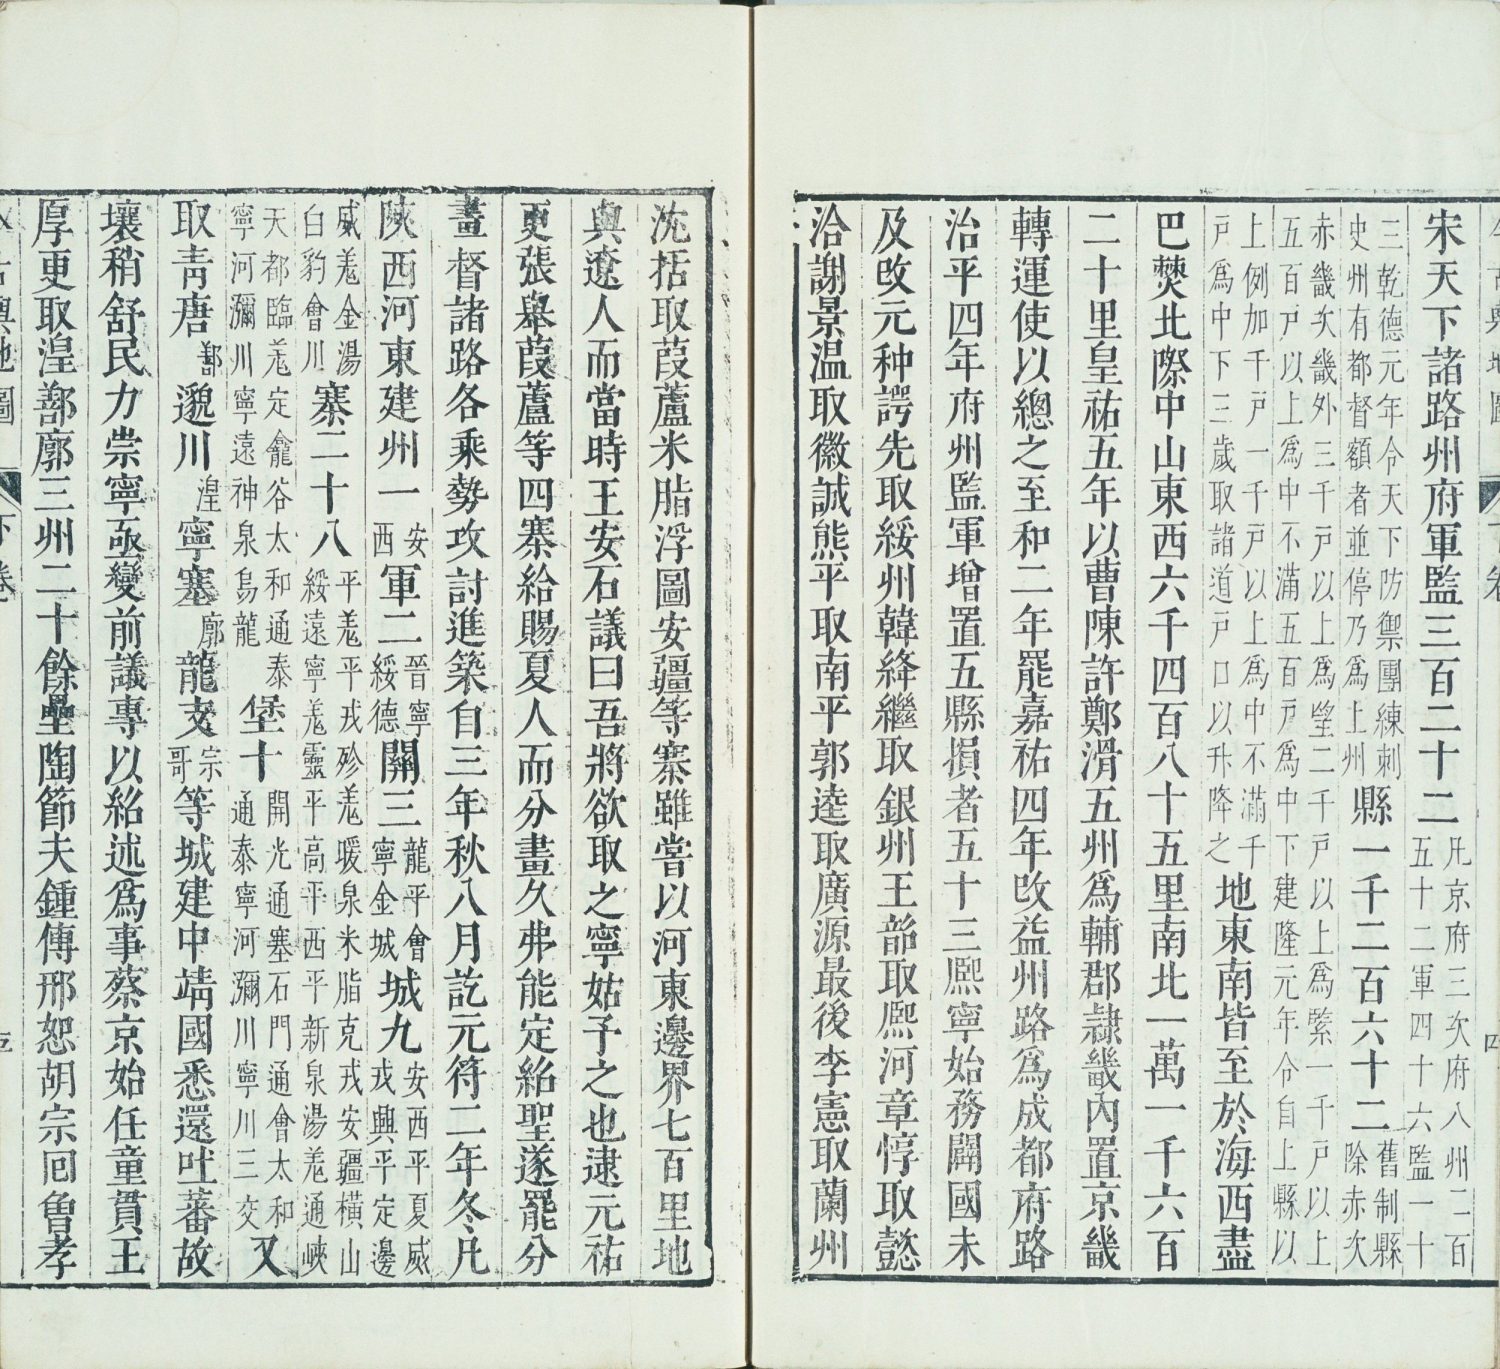 今古輿地圖 下卷 四
宋天下諸路州府軍監三百二十二
凡京府三次府八州二百
五十二軍四十六監一十
三乾德元年令天下防禦團練刺
史州有都督額者並停乃爲上州
縣一千二百六十二
舊制縣
除赤次
赤畿次畿外三千戸以上爲望二千戸以上爲緊一千戸以上
五百戸以上爲中不滿五百戸爲中下建隆元年令自上縣以
上例加千戸一千戸以上爲中不滿千
戸爲中下三歲取諸道戸口以升降之
地東南皆至於海西盡
巴僰北際中山東西六千四百八十五里南北一萬一千六百
二十里皇祐五年以曹陳許鄭滑五州爲輔郡隷畿內置京畿
轉運使以總之至和二年罷嘉祐四年改益州路爲成都府路
治平四年府州監軍增置五縣損者五十三熙寧始務闢國未
及改元种諤先取綏州韓絳繼取銀州王韶取熙河章惇取懿
洽謝景温取徽誠熊平取南平郭逵取廣源最後李憲取蘭州
沈括取葭蘆米脂浮圖安疆等寨雖嘗以河東邊界七百里地
與遼人而當時王安石議曰吾將欲取之寧姑子之也逮元祐
更張舉葭蘆等四寨給賜夏人而分畫久弗能定紹聖遂罷分
畫督諸路各乘勢攻討進築自三年秋八月訖元符二年冬凡
陝西河東建州一
安
西
軍二
晉寧
綏德
關三
龍平會
寧金城
城九
安西平夏威
戎興平定邊
威羗金湯
白豹會川
寨二十八
平羗平戎殄羗暖泉米脂克戎安疆橫山
綏遠寧羗靈平高平西平新泉湯羗通峽
天都臨羗定龕谷太和通泰
寧河瀰川寧遠神泉烏龍
堡十
開光通塞石門通會太和
通泰寧河瀰川寧川三交
又
取青唐鄯邈川湟寧塞廓龍支宗哥等城建中靖國悉還吐蕃故
壤稍舒民力崇寧亟變前議專以紹述爲事蔡京始任童貫王
厚更取湟鄯廓三州二十餘壘陶節夫鍾傳邢恕胡宗囘魯孝
今古輿地圖 下卷 五